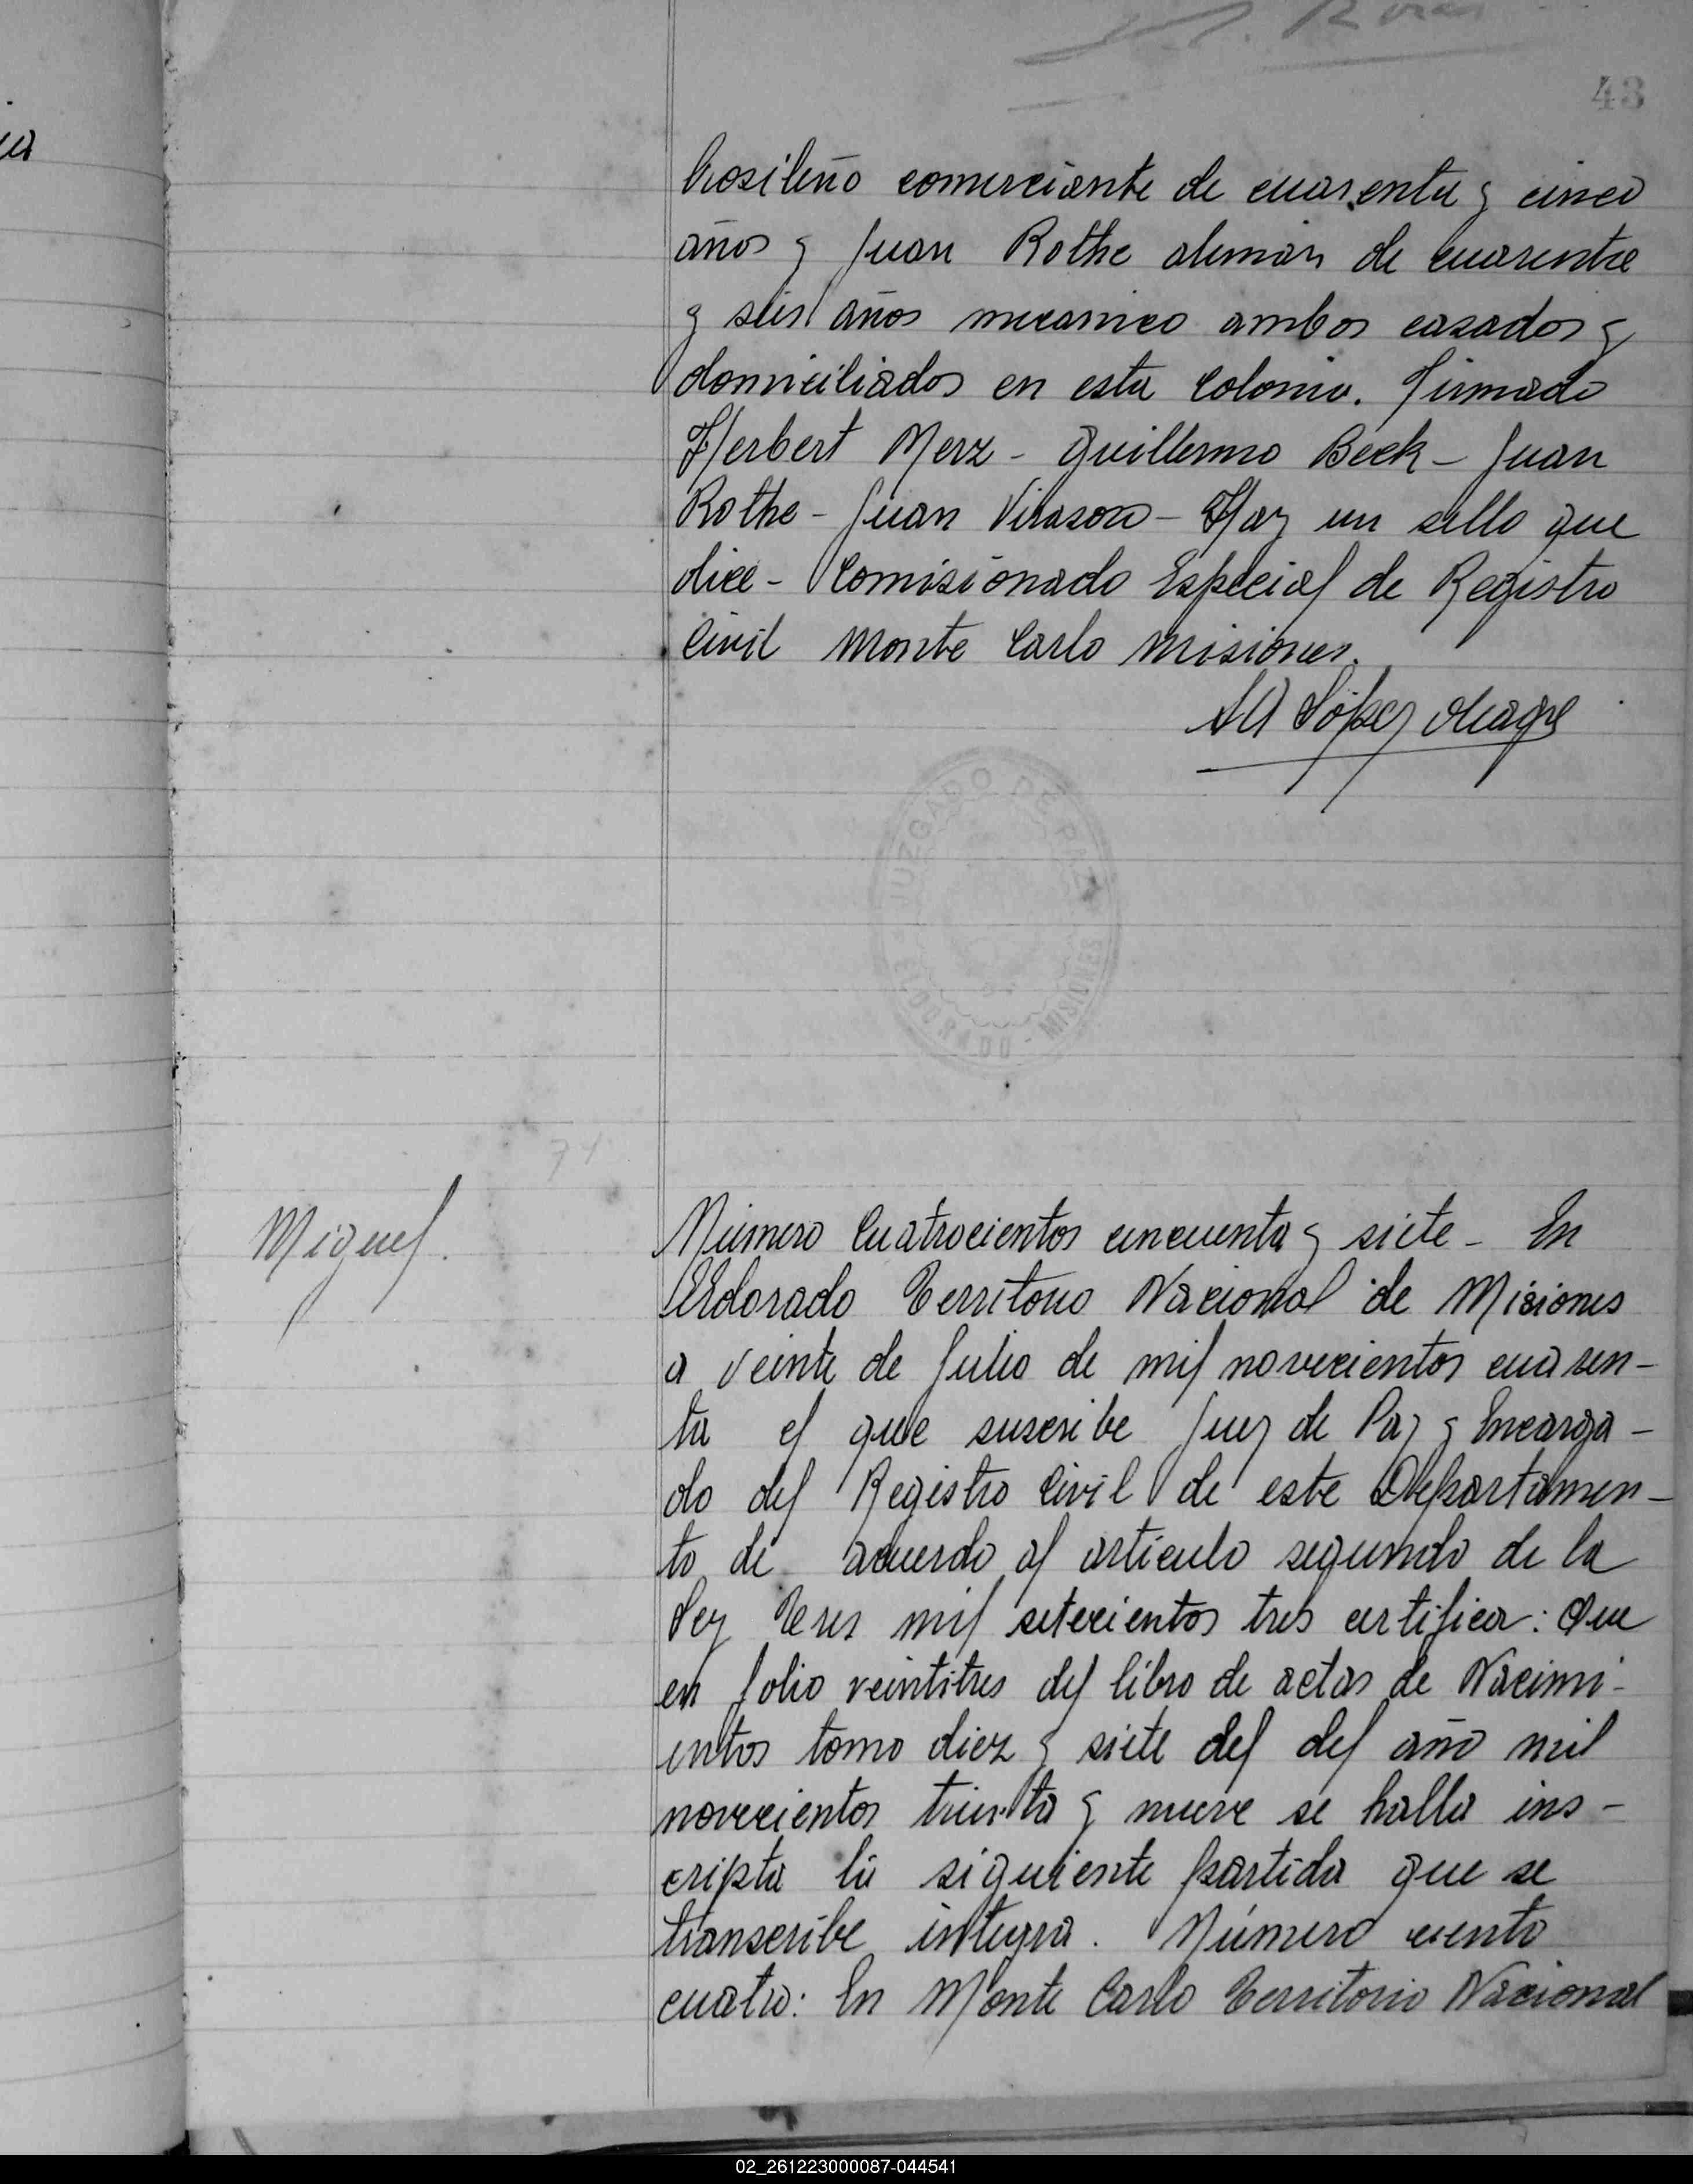 43
brasileño comerciante de cuarenta y cinco
años y Juan Rothe aleman de cuarenta
y seis años mecanico ambos casados y
domiciliados en esta Colonia. Firmado
Herbert Merz - Guillermo Beck - Juan
Rothe - Juan Virasoro - Hay un sello que
dice - Comisionado Especial de Registro
Civil Monte Carlo Misiones.
López
JUZGADO DE PAZ
ELDORADO - MISIONES
71
Miguel.
Número Cuatrocientos cincuenta y siete - En
Eldorado Territorio Nacional de Misiones
a veinte de Julio de mil novecientos cuaren-
ta el que suscribe Juez de Paz y Encarga-
do del Registro Civil de este Departamen-
to de acuerdo al articulo segundo de la
Ley Tres mil setecientos tres certifica: Que
en folio veintitres del libro de actas de Nacimi-
entos tomo diez y siete del del año mil
novecientos treinta y nueve se halla ins-
cripta la siguiente partida que se
transcribe integra. Número ciento
cuatro: En Monte Carlo Territorio Nacional
02_261223000087-044541